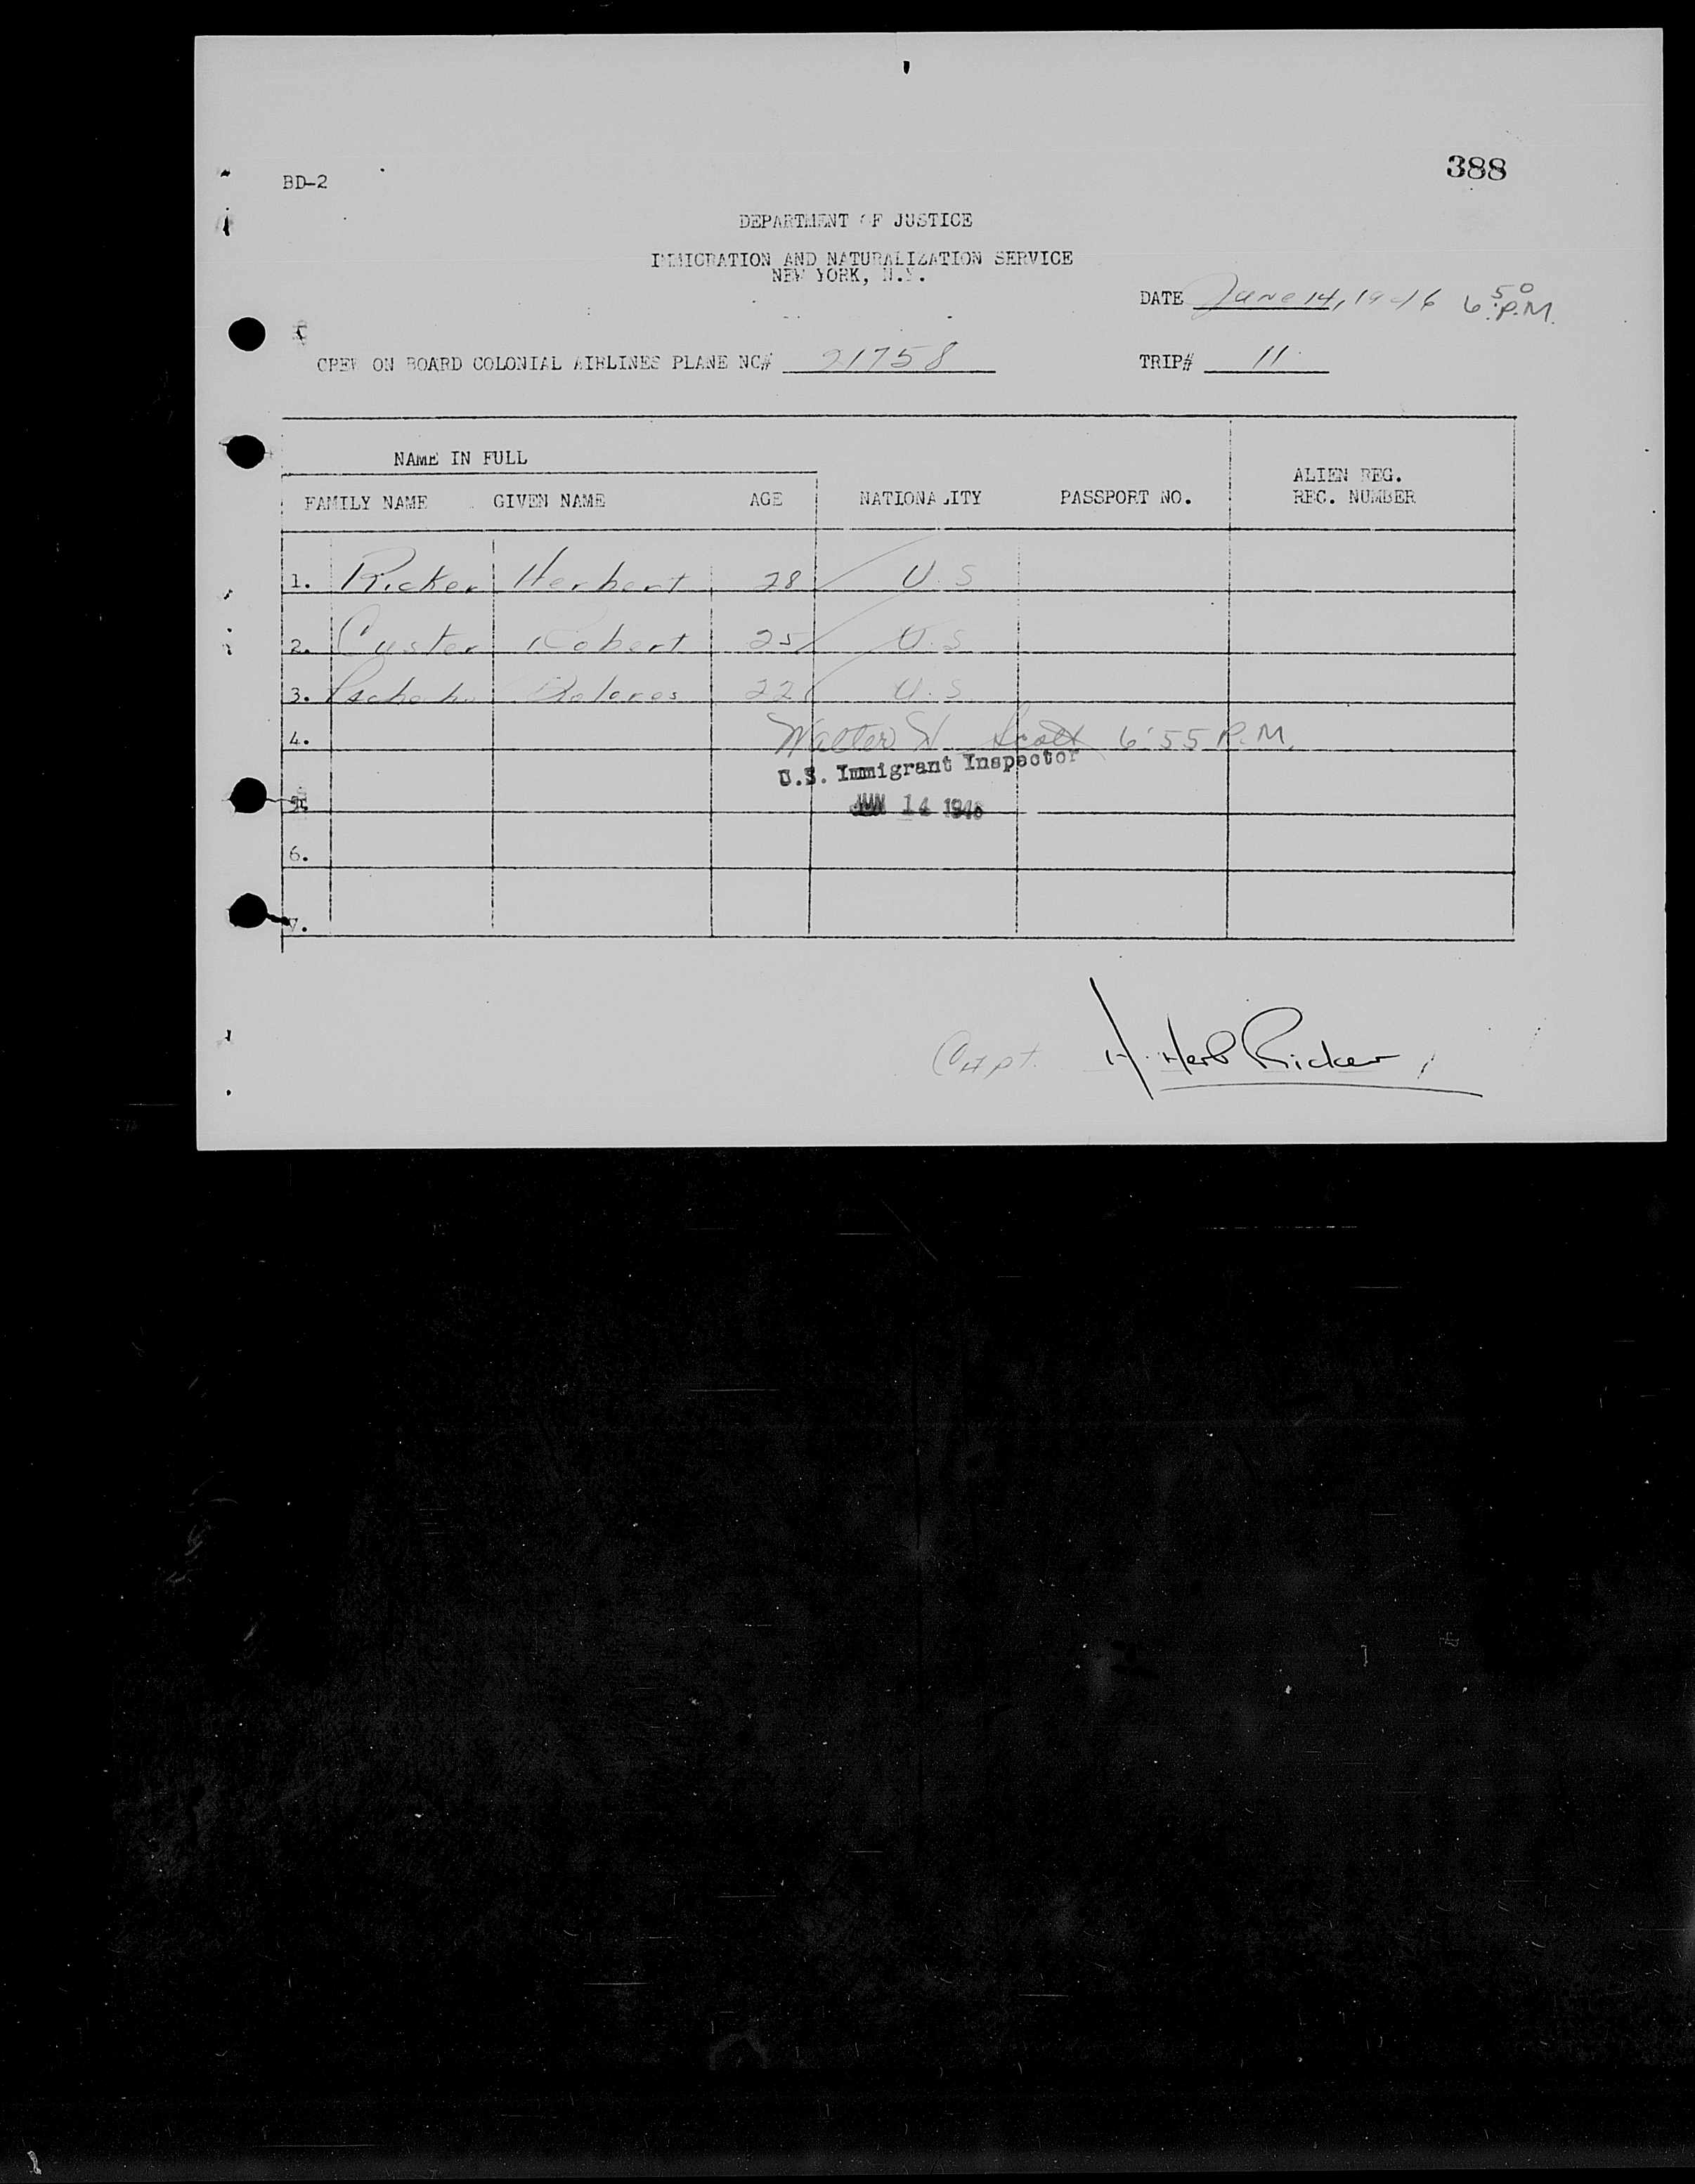 388
BD-2
DEPARTMENT OF JUSTICE
IMMIGRATION AND NATURALIZATION SERVICE
NEW YORK, N.Y.
DATE June 14, 1946 6:50 P.M.
CREW ON BOARD COLONIAL AIRLINES PLANE NC# 21758 TRIP# 11
NAME IN FULL
ALIEN REG.
FAMILY NAME GIVEN NAME AGE NATIONALITY PASSPORT NO. REC. NUMBER
1. Ricker Herbert 28 U.S
2. Custer Robert 25 U.S
3. Dolores 22 U.S
4. Walter H Scott 6:55 P.M.
U.S. Immigrant Inspector
5. JUN 14 1946
6.
7.
Capt. H. Herb Ricker